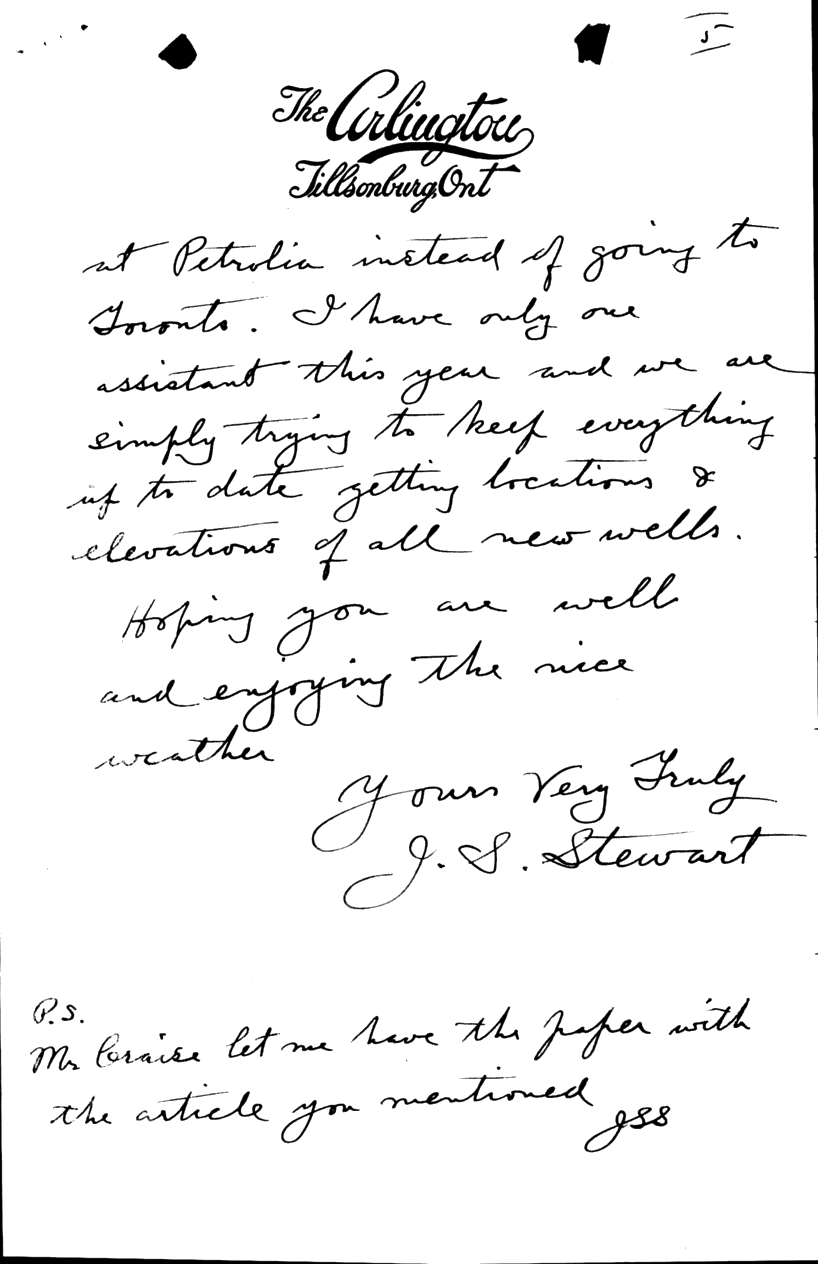 5
The Arlington
Tillsonburg, Ont
at Petrolia instead of going to
Toronto. I have only one
assistant this year and we are
simply trying to keep everything
up to date getting locations &
elevations of all new wells.
Hoping you are well
and enjoying the nice
weather
Yours Very Truly
J. S. Stewart
P.S.
Mr Craise let me have the paper with
the article you mentioned
JSS